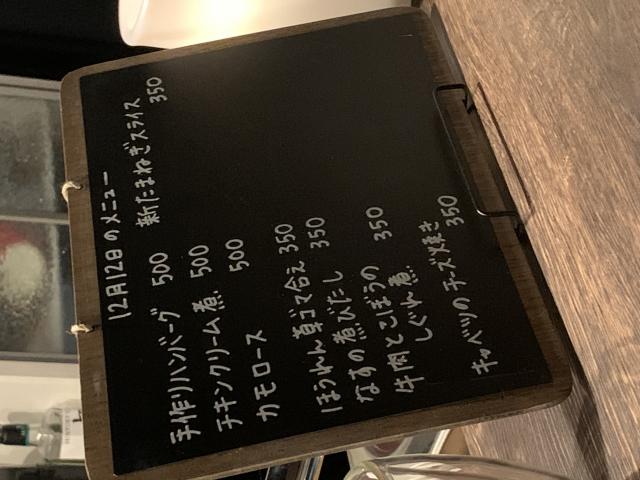 12月12日のメニュー
手作りハンバーグ 500
チキンクリーム煮 500
カモロース 500
ほうれん草ゴマ合え 350
なすの煮びたし 350
牛肉とごぼうの
しぐれ煮 350
キャベツのチーズ焼き 350
新たまねぎスライス 350